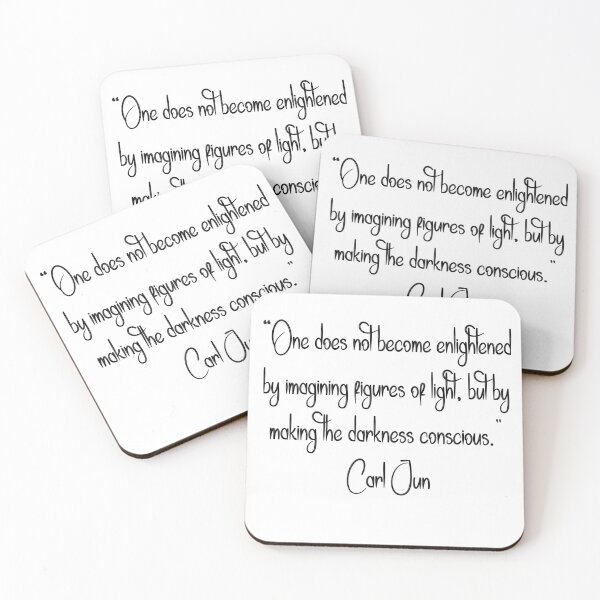 "One does not become enlightened
by imagining figures of light, but
making the conscious
"One does not become enlightened
by imagining figures of light, but by
making the darkness conscious."
"One does not become enlightened
by imagining figures of light, but by
making the darkness conscious."
Carl Jun
"One does not become enlightened
by imagining figures of light, but by
making the darkness conscious."
Carl Jun